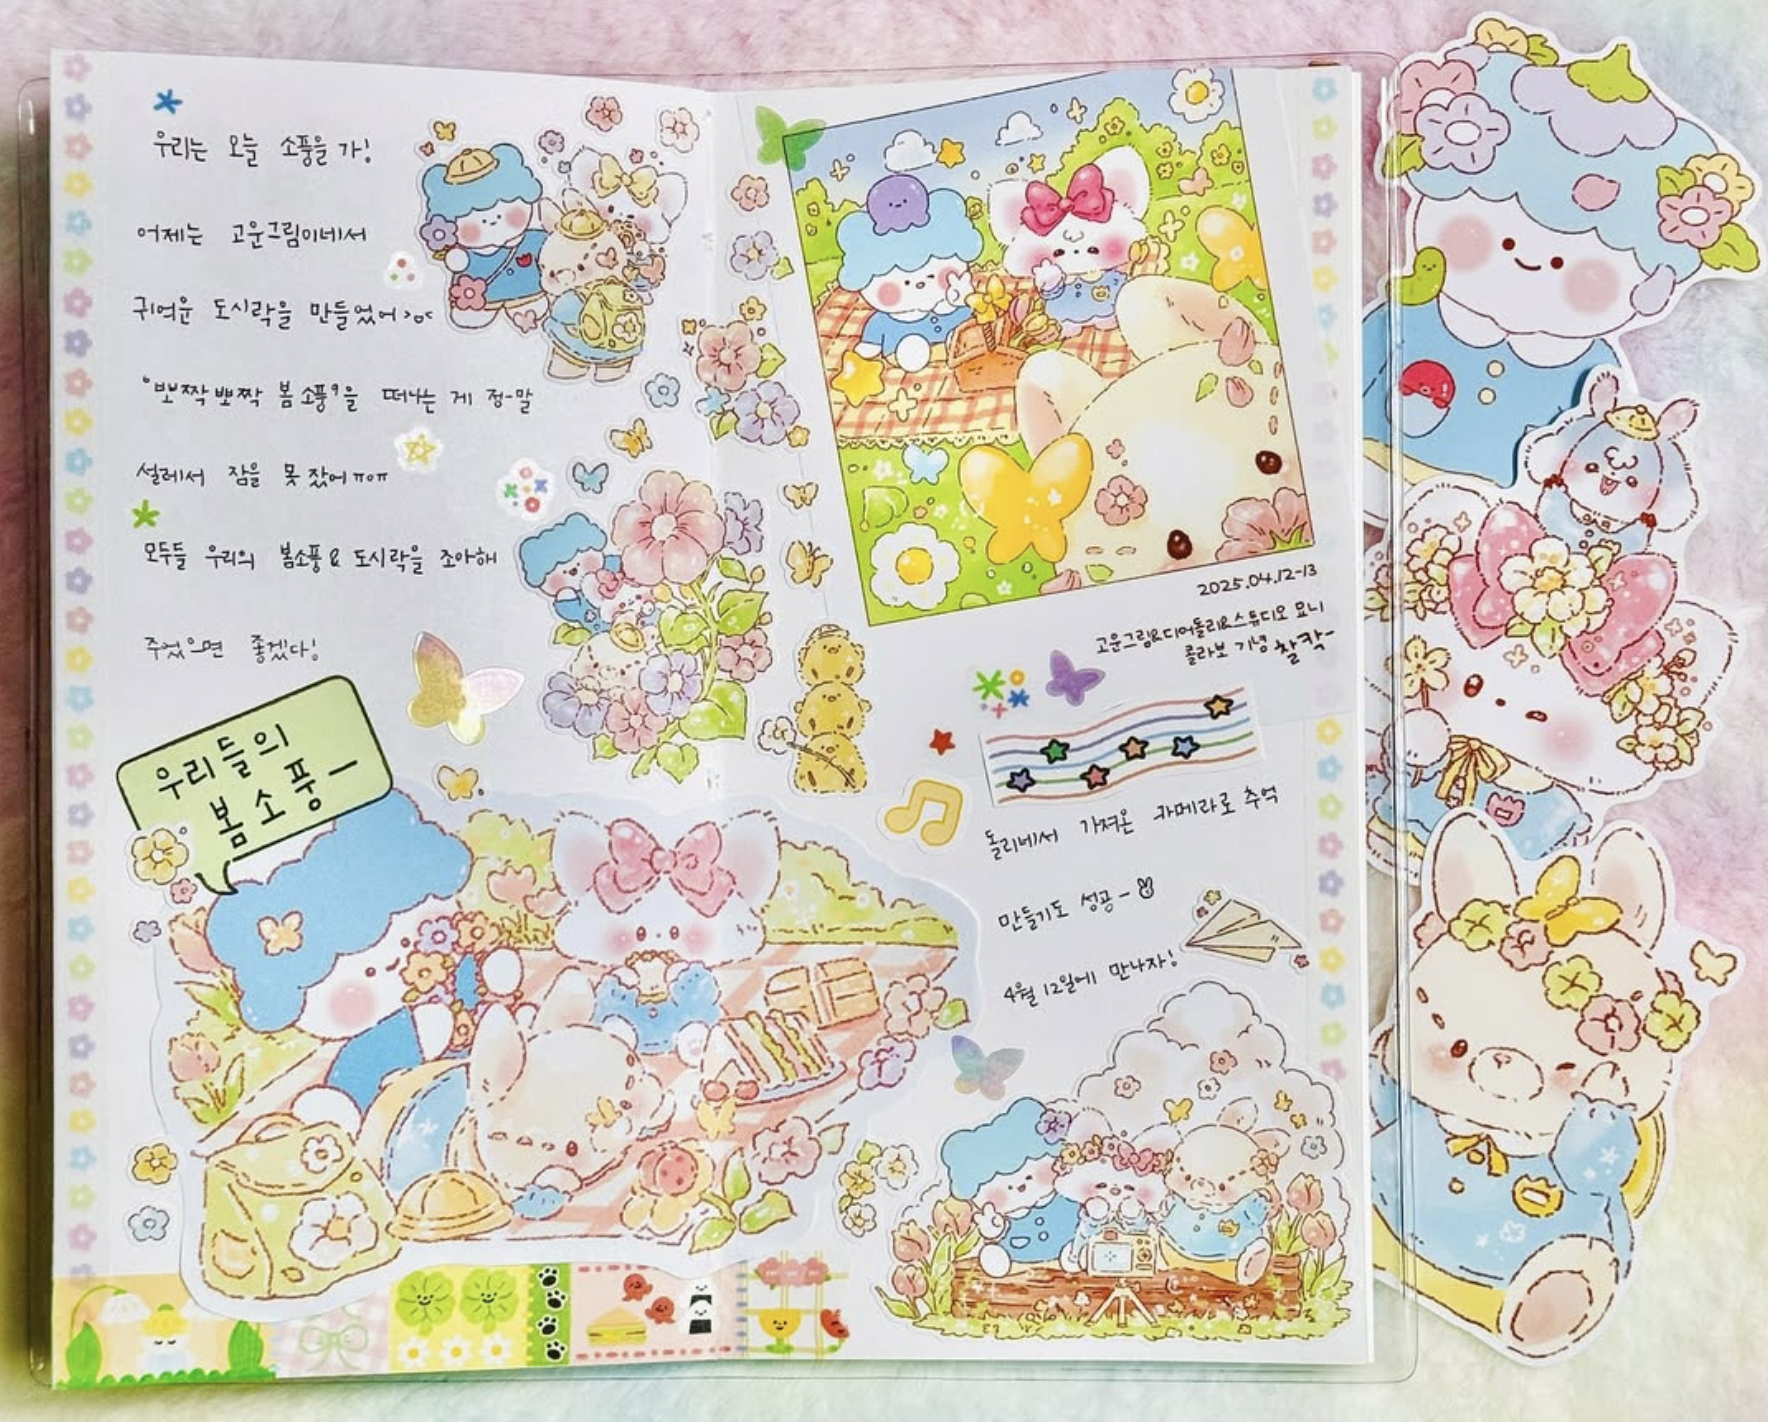 우리는 오늘 소풍을 가!
어제는 고운그림이네서
귀여운 도시락을 만들었어>o<
"뽀짝뽀짝 봄소풍"을 떠나는 게 정-말
설레서 잠을 못 잤어ㅠoㅠ
모두들 우리의 봄소풍 & 도시락을 조아해
주었으면 좋겠다!
우리들의
봄소풍ー
2025.04.12-13
고운그림&디어돌리&스튜디오 요니
콜라보 기념 찰칵-
돌리네서 가져온 카메라로 추억
만들기도 성공-
4월 12일에 만나자!